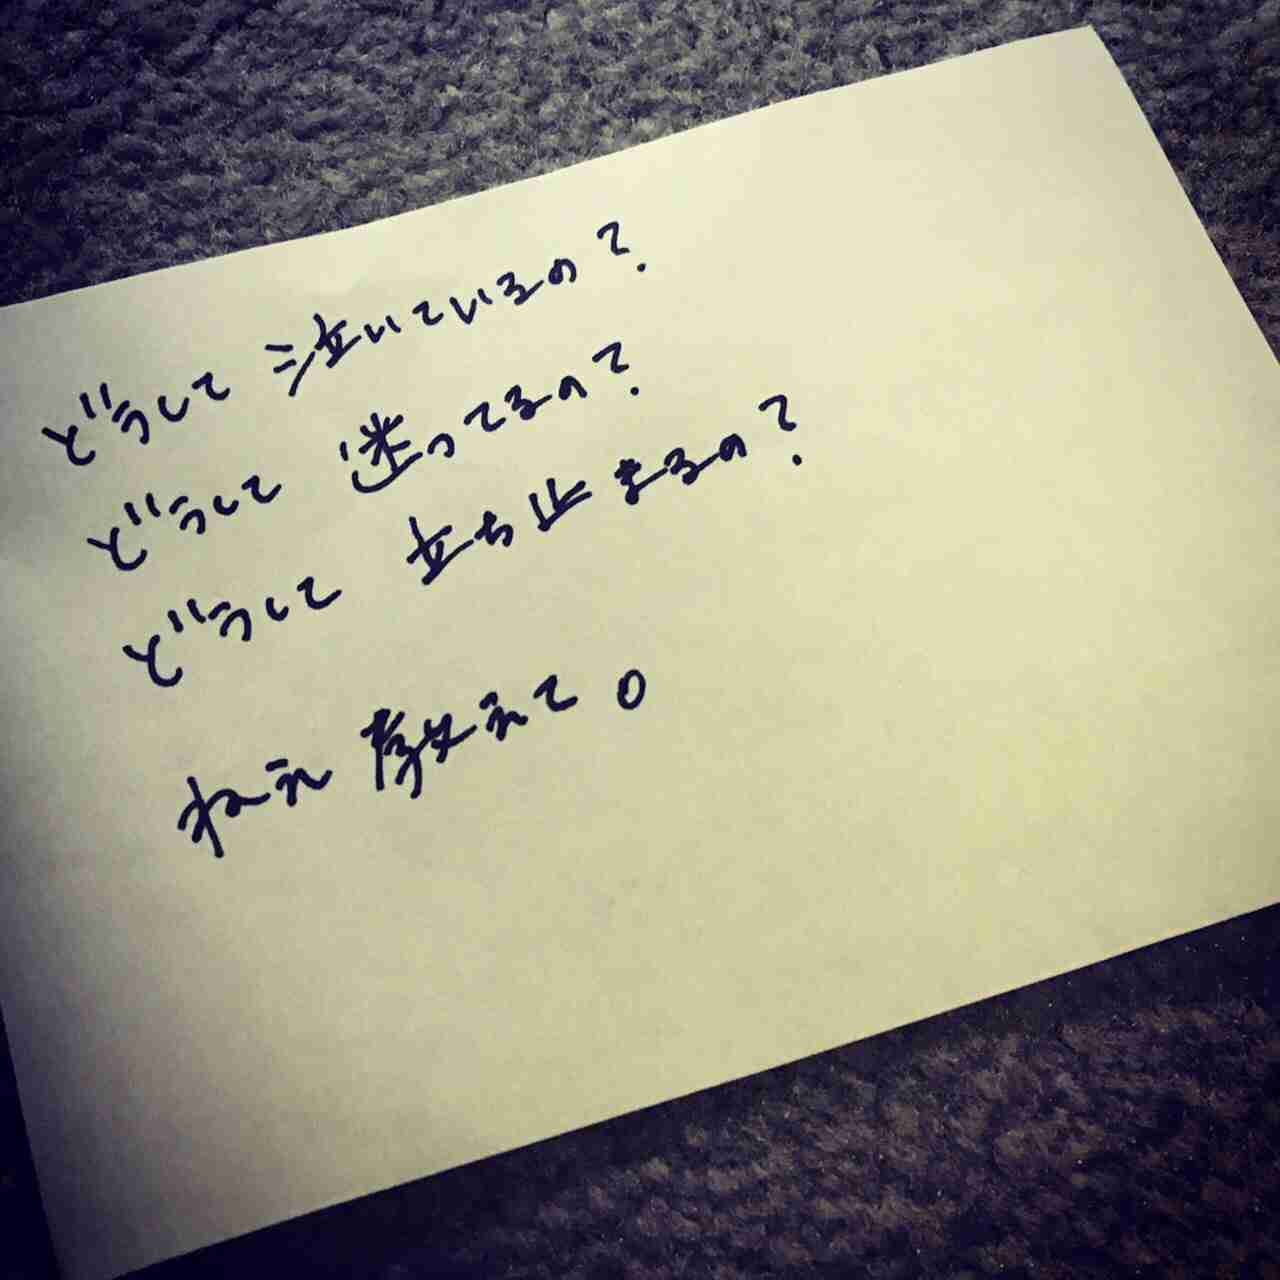 どうして 泣いているの?
どうして 迷ってるの?
どうして 立ち止まるの?
ねえ 教えて。